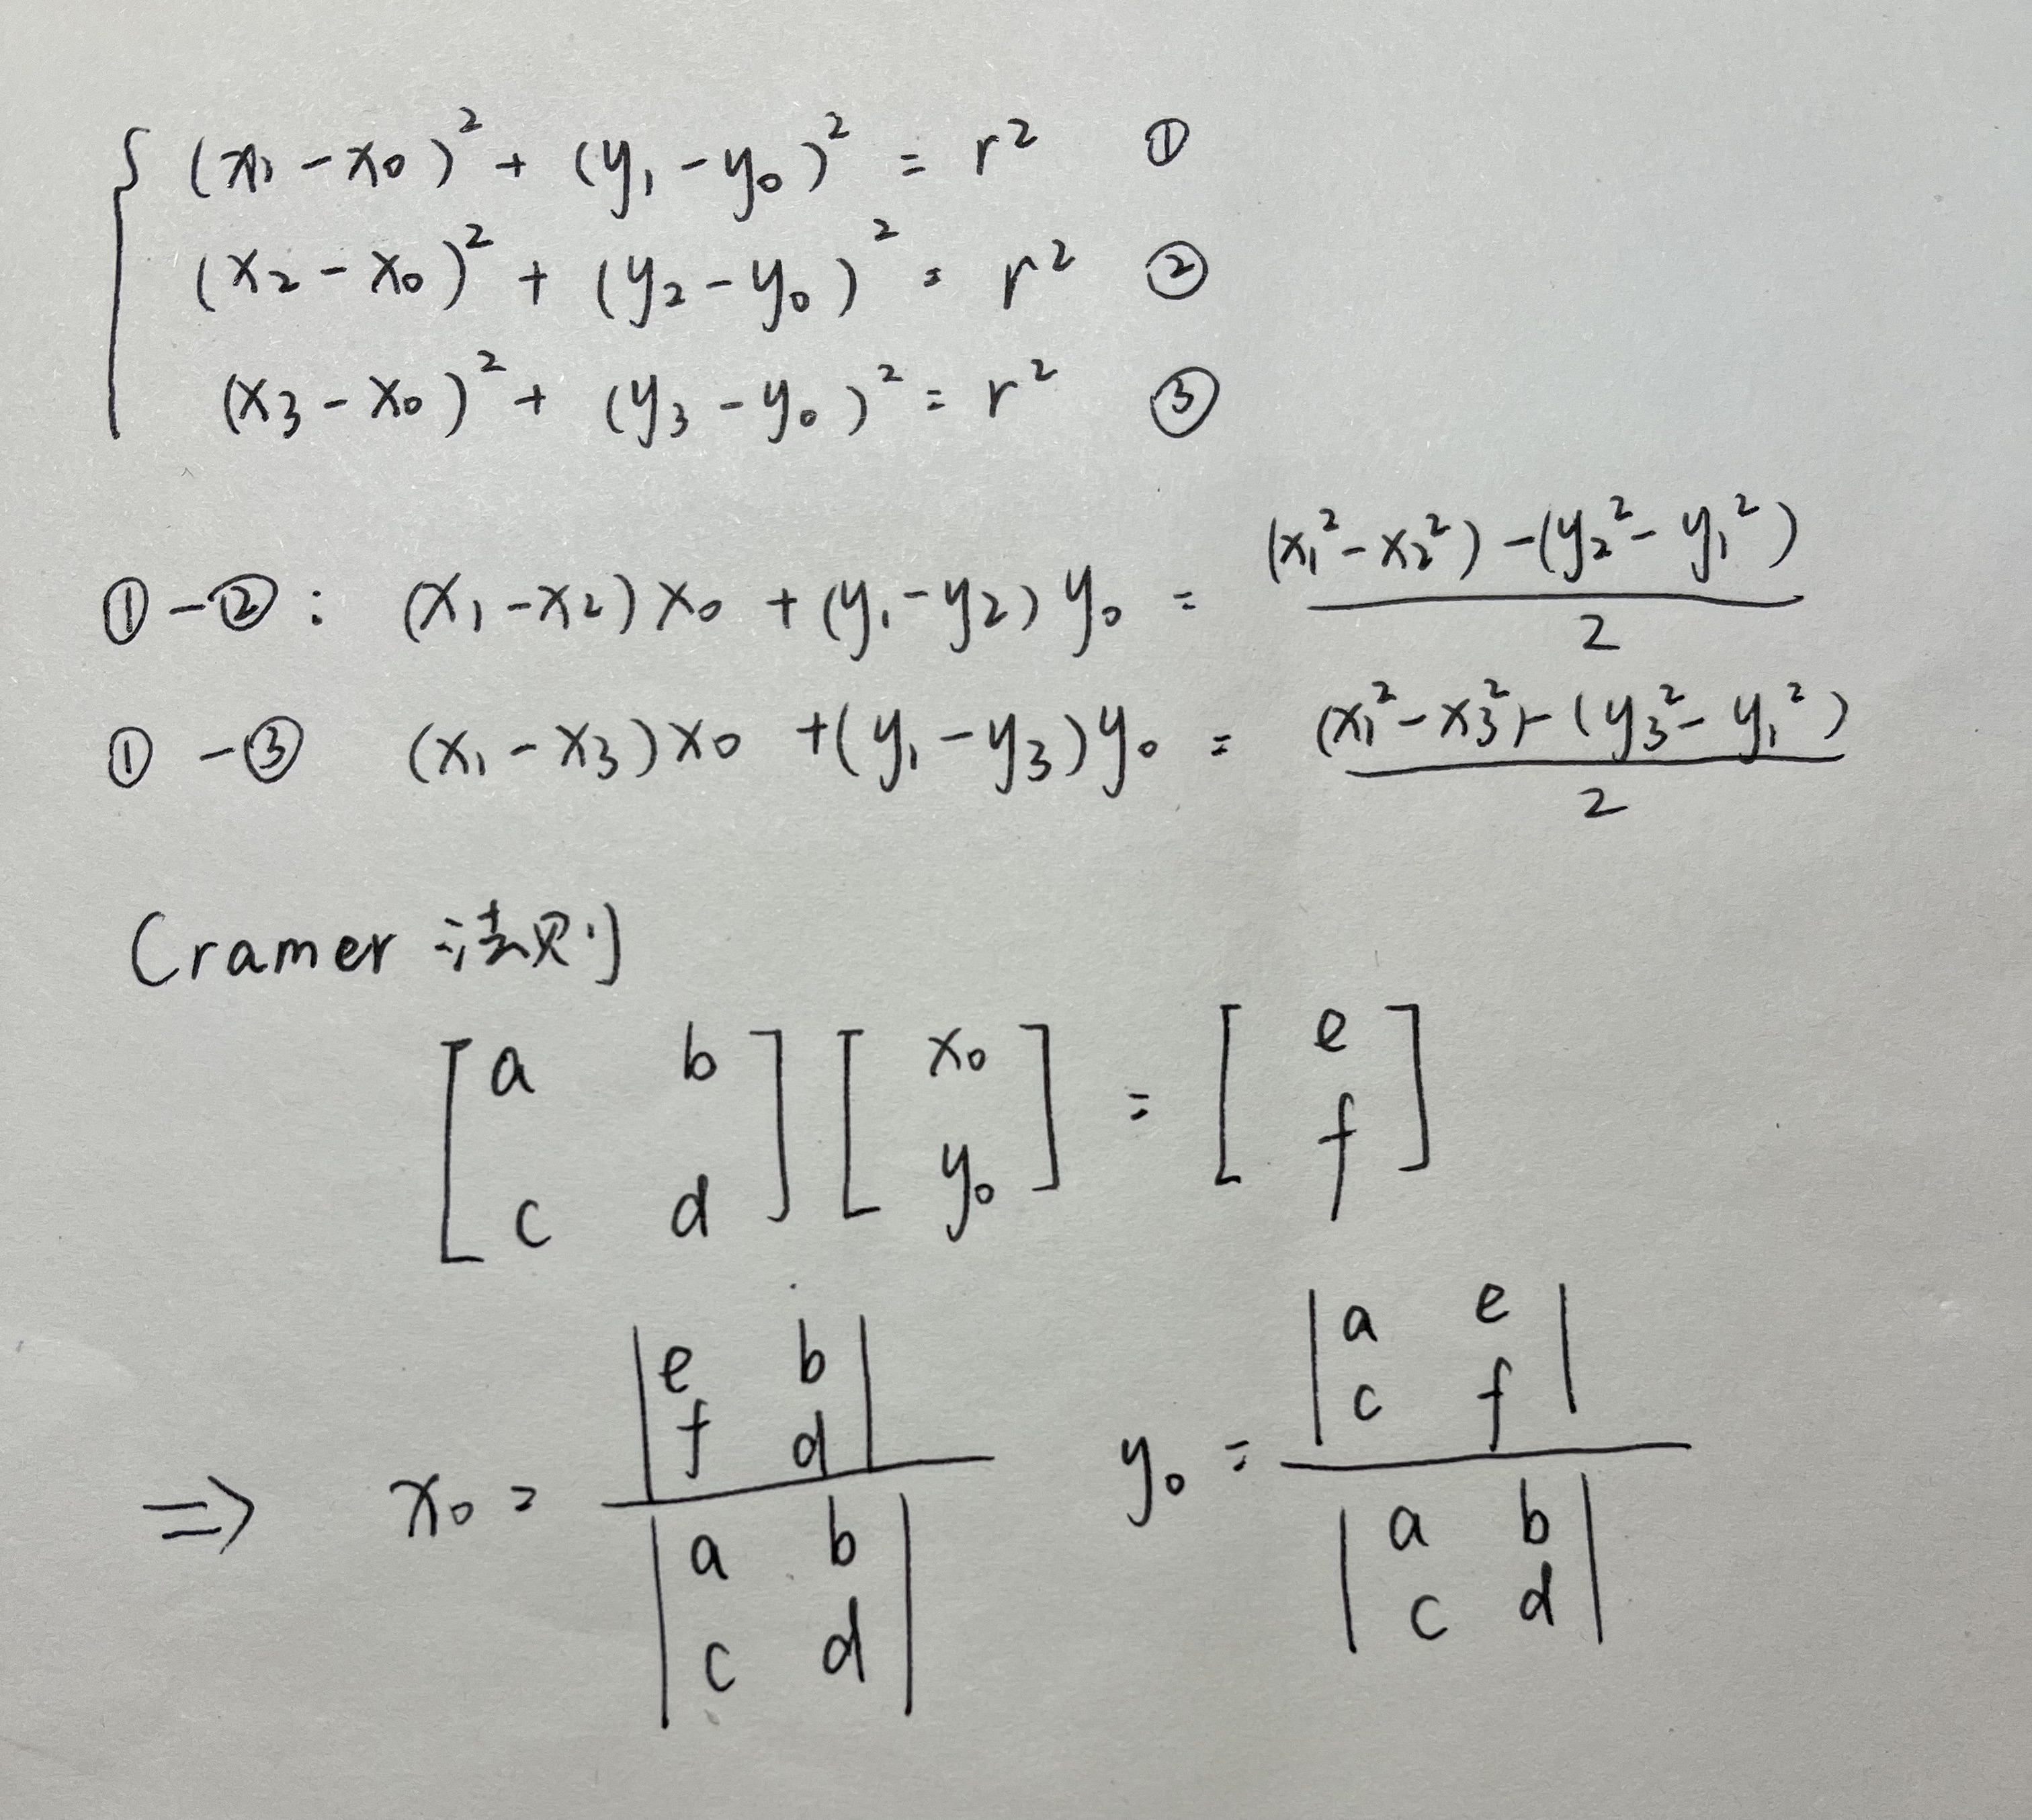 (x₁ - x₀)² + (y₁ - y₀)² = r² ①
(x₂ - x₀)² + (y₂ - y₀)² = r² ②
(x₃ - x₀)² + (y₃ - y₀)² = r² ③
① - ② : (x₁ - x₂) x₀ + (y₁ - y₂) y₀ = (x₁² - x₂²) - (y₂² - y₁²) / 2
① - ③ (x₁ - x₃) x₀ + (y₁ - y₃) y₀ = (x₁² - x₃²) - (y₃² - y₁²) / 2
Cramer 法则
[a b; c d] [x₀; y₀] = [e; f]
⇒ x₀ = |e b; f d| / |a b; c d| y₀ = |a e; c f| / |a b; c d|